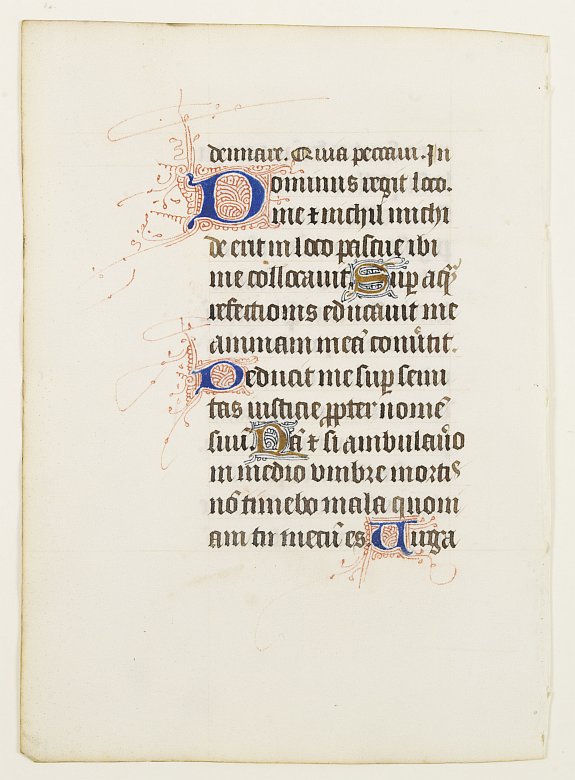 demiare. Quia peccaui. In
Dominus regit loco.
me ⁊ nichil michi
de erit in loco pascue ibi
me collocauit Sup aq̄
refectionis educauit me
animam meā conūtit.
Deducit me sup semi
tas iusticie ꝓpter nomē
suū. Nā ⁊ si ambulauō
in medio vmbre mortis
nō timebo mala quoni
am tu mecū es. Uirga